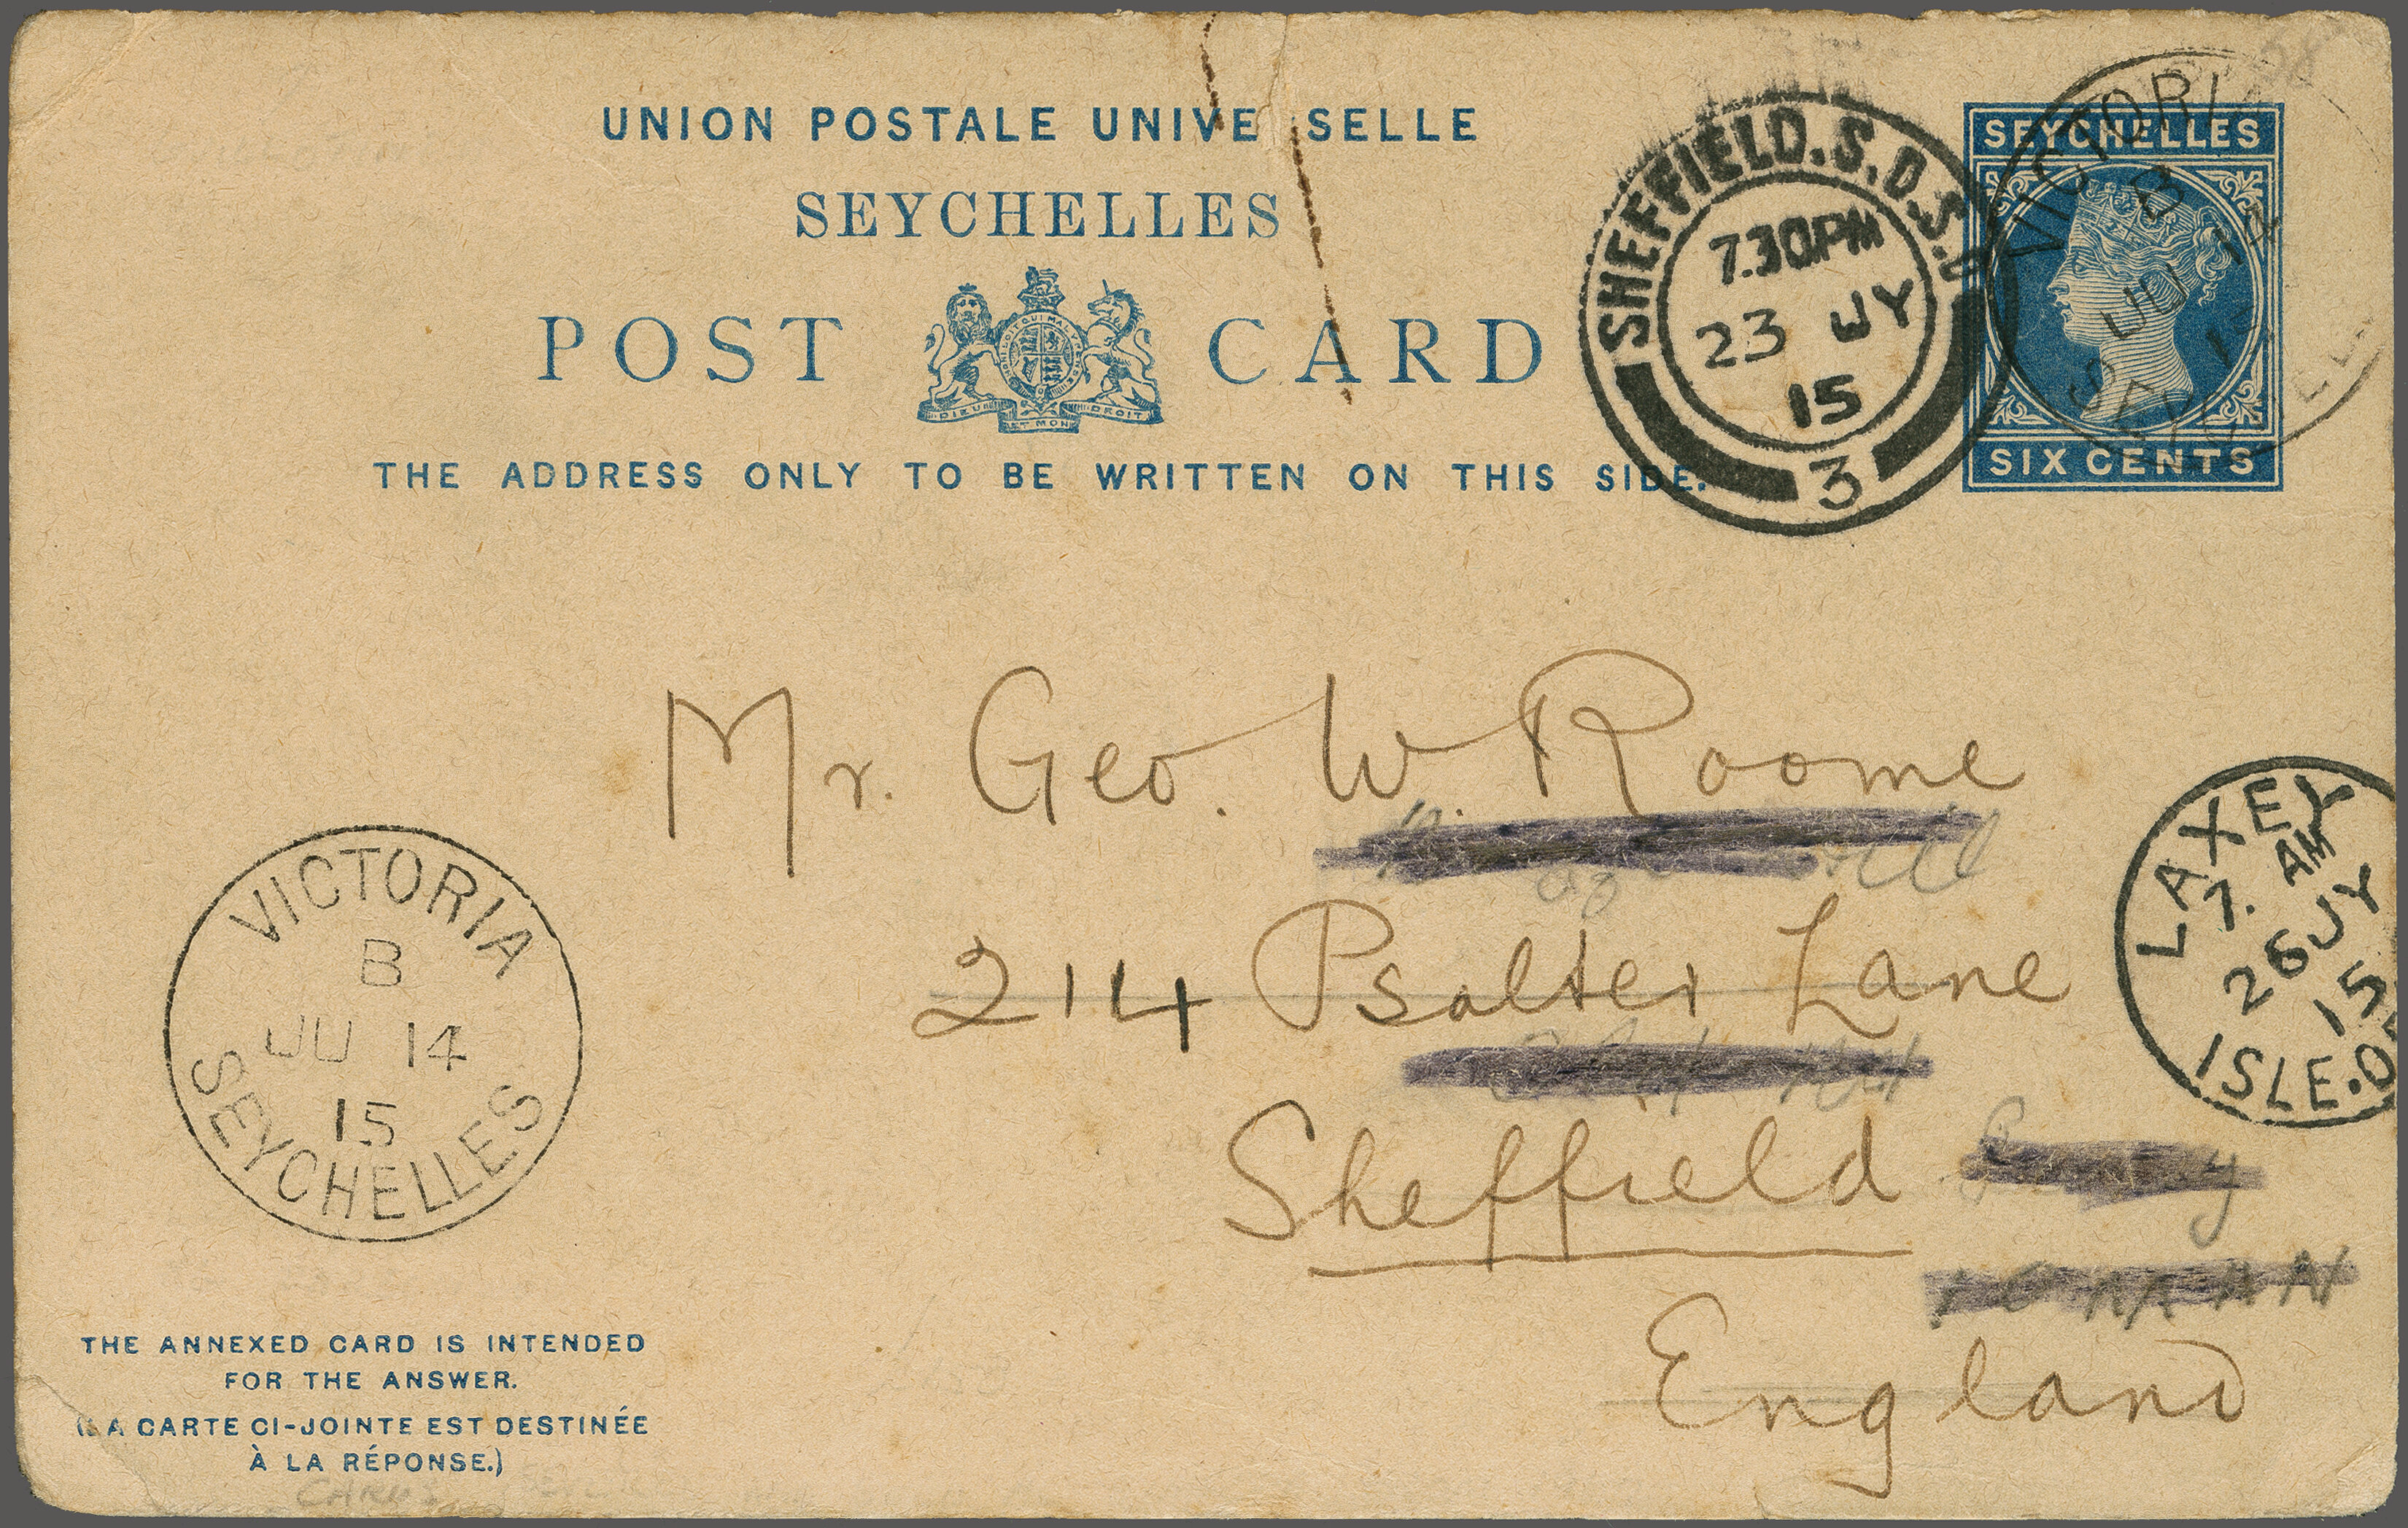 UNION POSTALE UNIVE SELLE
SEYCHELLES
POST CARD
HONI SOIT QUI MAL Y PENSE
DIEU ET MON DROIT
THE ADDRESS ONLY TO BE WRITTEN ON THIS SIDE.
SHEFFIELD.S.O.S.O
7.30PM
23 JY
15
3
SEYCHELLES
SIX CENTS
VICTORIA
B
JU 14
15
Mr. Geo. W. Roome
214 Psalter Lane
Sheffield
England
LAXEY
7. AM
26 JY
15
ISLE.OF
VICTORIA
B
JU 14
15
SEYCHELLES
THE ANNEXED CARD IS INTENDED
FOR THE ANSWER.
(LA CARTE CI-JOINTE EST DESTINÉE
À LA RÉPONSE.)